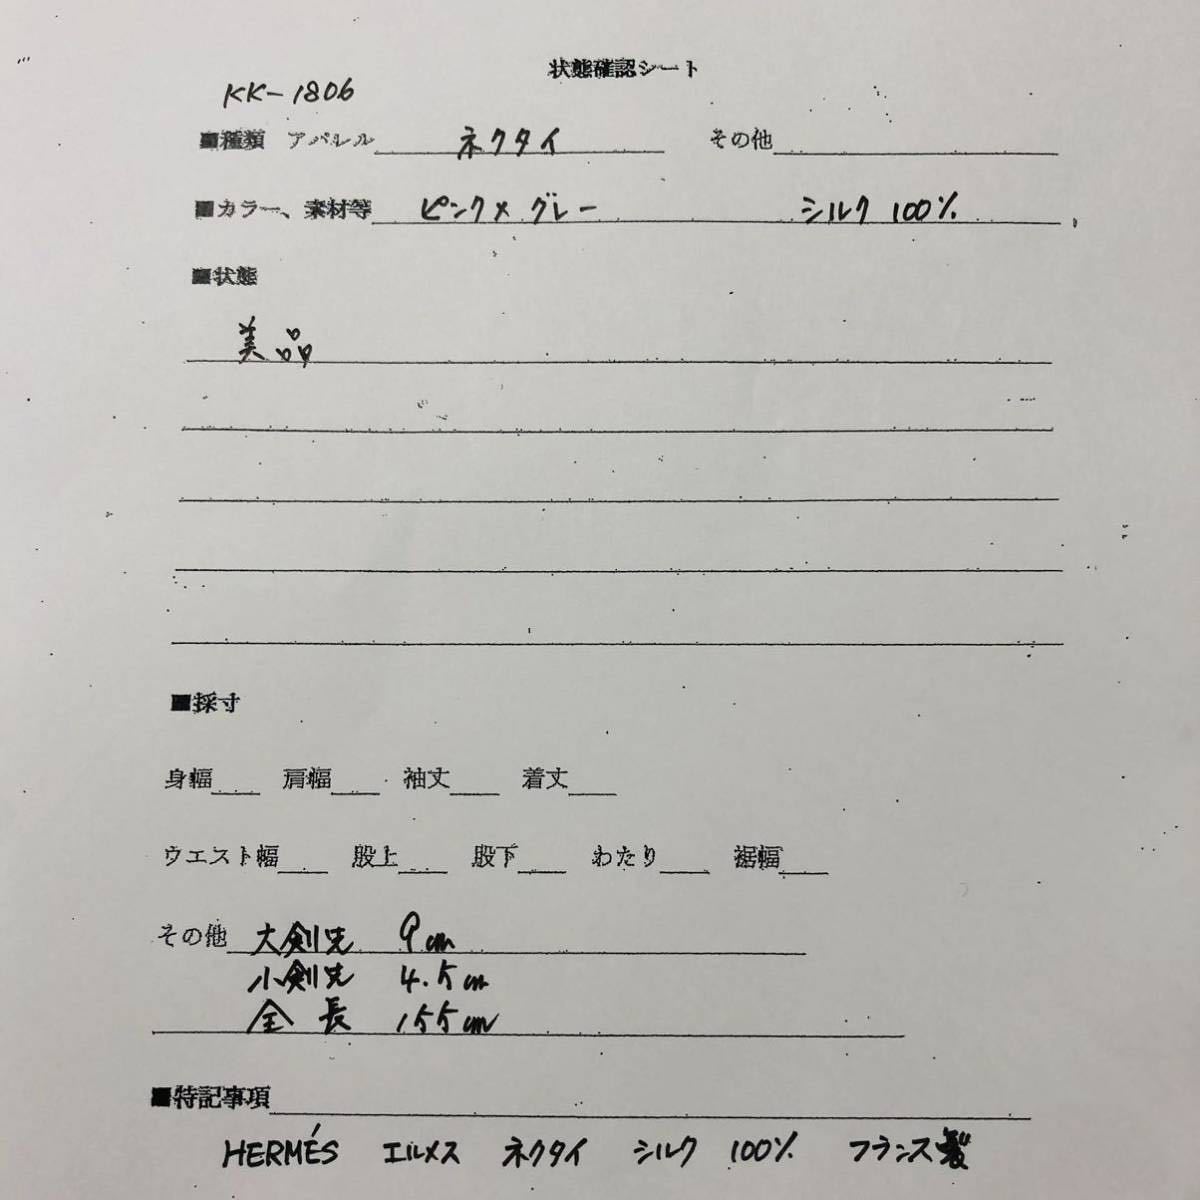 状態確認シート
KK-1806
■種類 アパレル ネクタイ その他
■カラー、素材等 ピンク×グレー シルク 100%
■状態
美品
■採寸
身幅 肩幅 袖丈 着丈
ウエスト幅 股上 股下 わたり 裾幅
その他 大剣先 9cm
小剣先 4.5cm
全長 155cm
■特記事項
HERMÉS エルメス ネクタイ シルク 100% フランス製